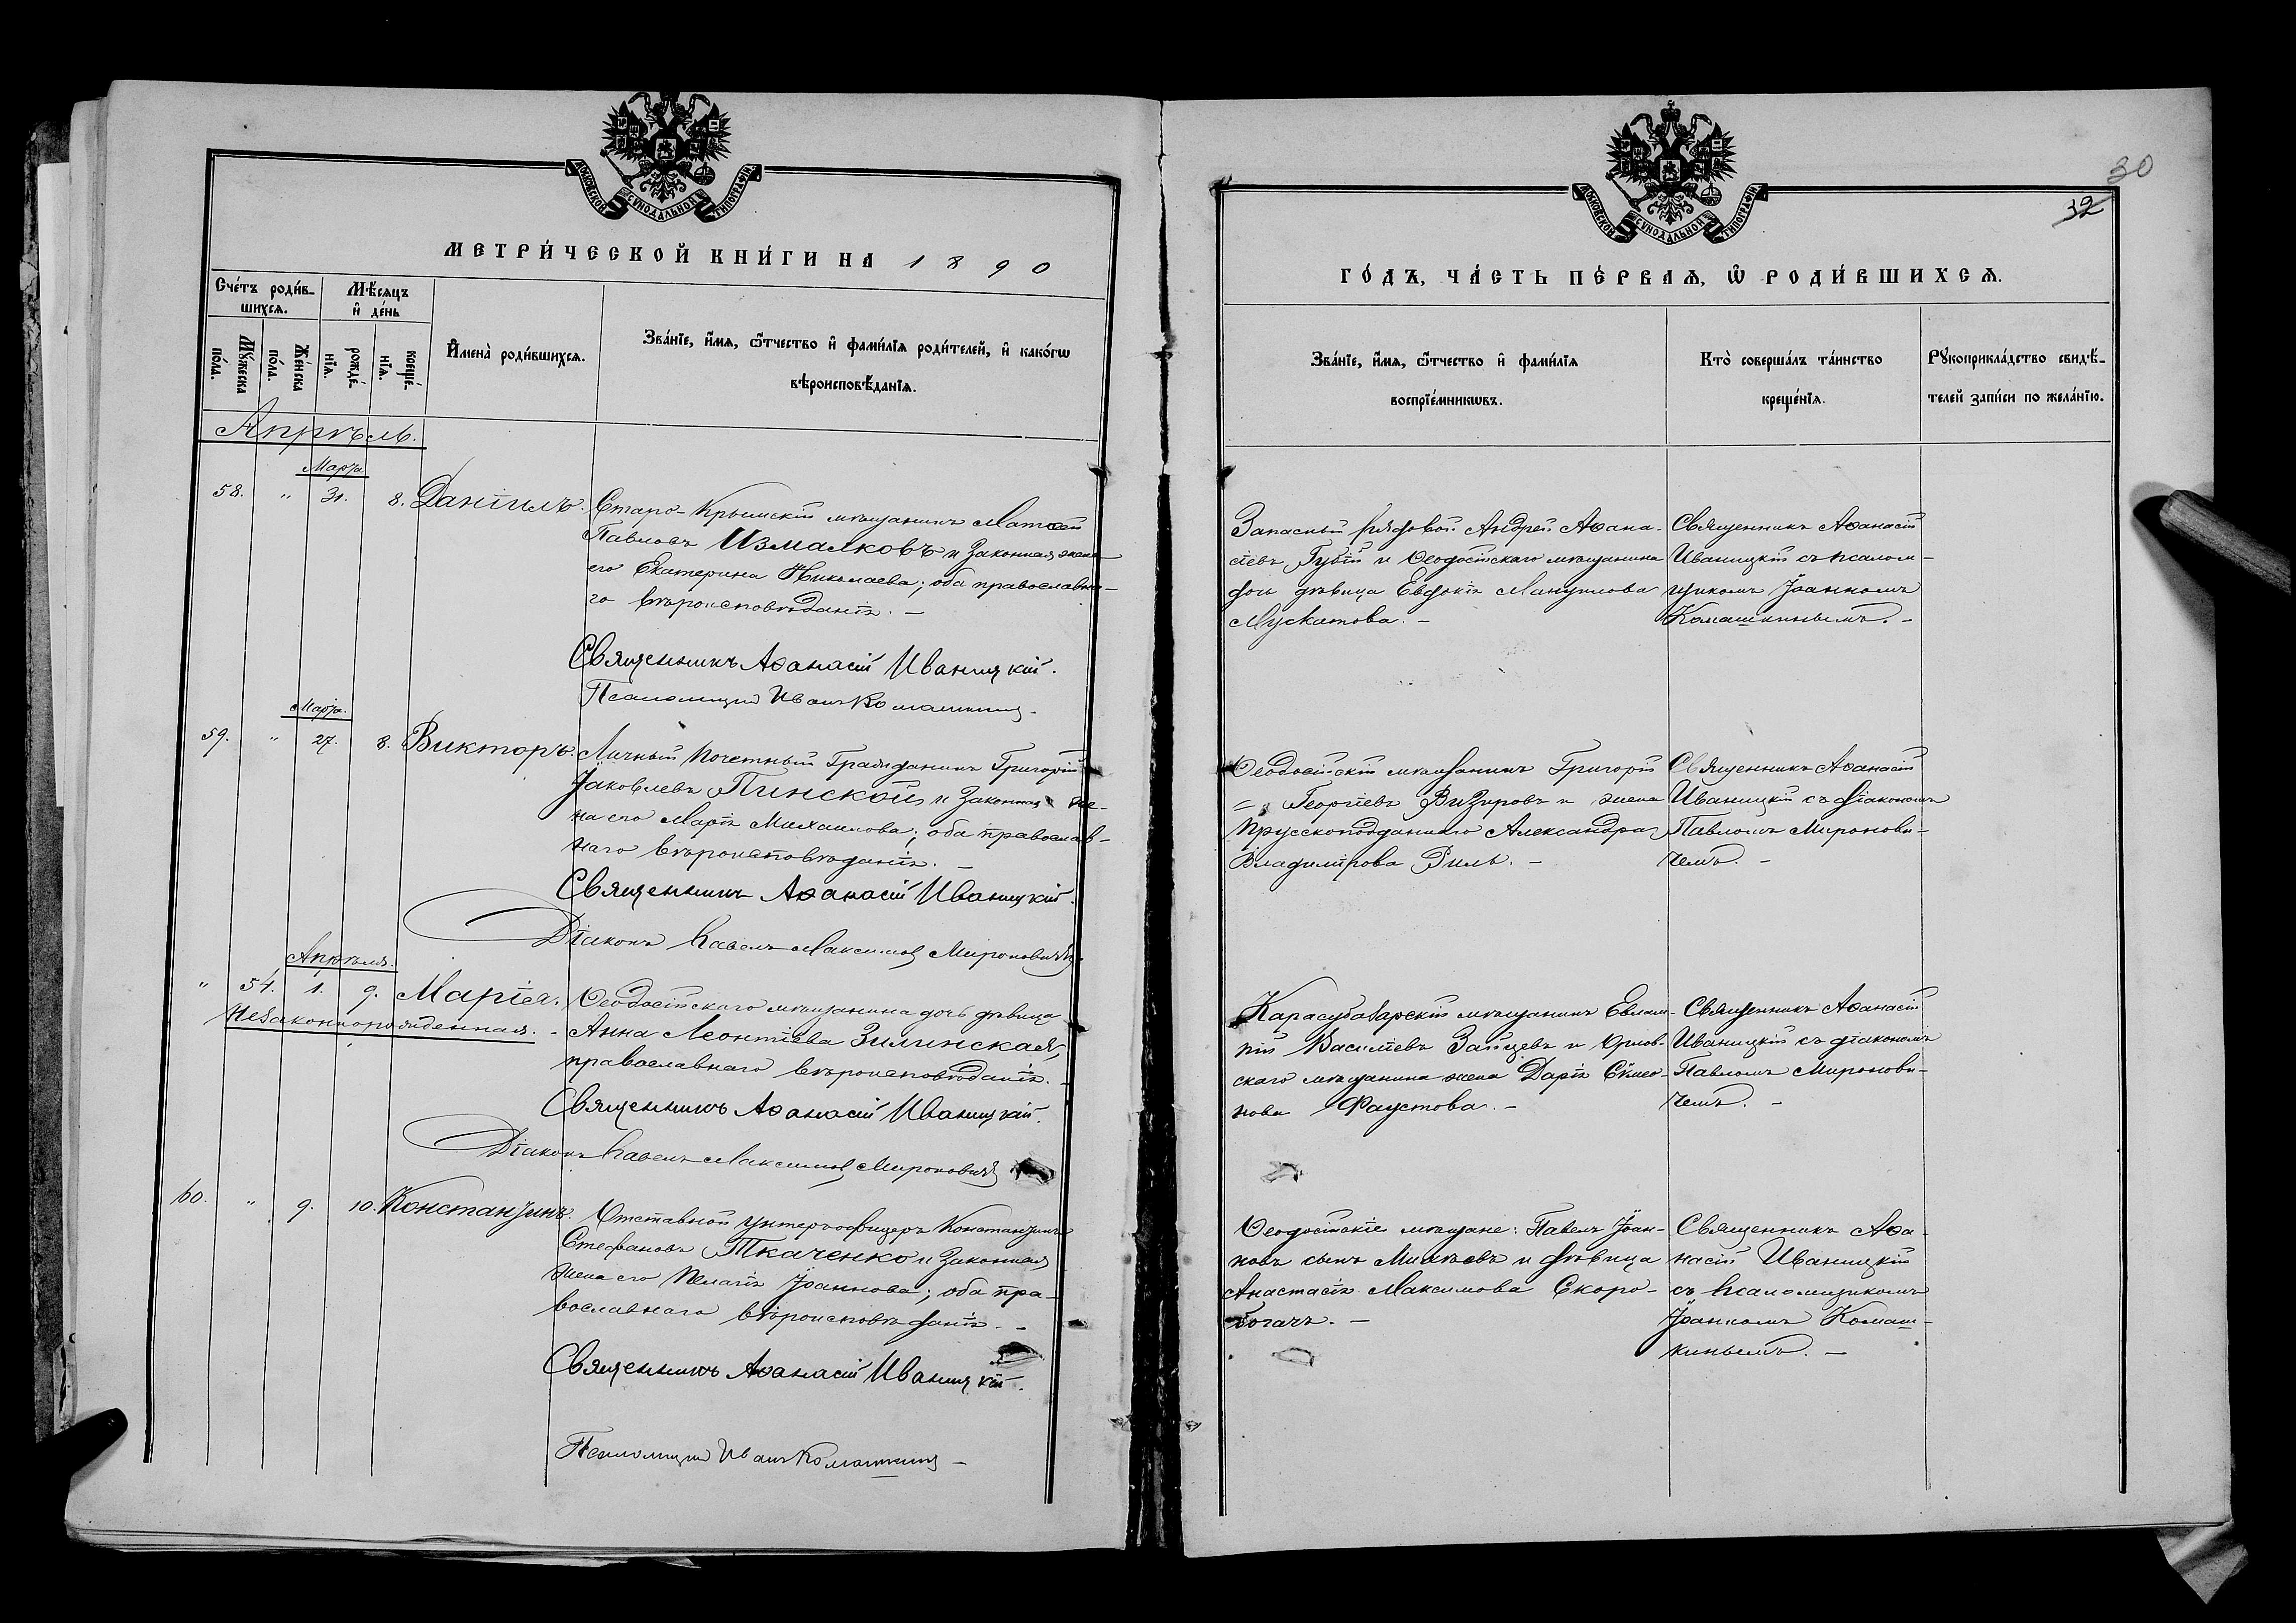 МОСКОВСКОЙ СѴНОДАЛЬНОЙ ТИПОГРАФІИ
МЕТРИ́ЧЕСКОЙ КНИ́ГИ НА 1890
Сче́тъ роди́в-
шихсѧ.
Мѣ́сѧцъ
и҆ де́нь
Мꙋ́жеска
по́ла.
Же́нска
по́ла.
рожде́-
нїѧ.
креще́-
нїѧ.
И҆мена̀ роди́вшихсѧ.
Зва́нїе, и҆́мѧ, ѻ҆́тчество и҆ фами́лїѧ роди́телей, и҆ како́гѡ
вѣроисповѣ́данїѧ.
Апрѣль.
Марта
58. " 31. 8. Даніилъ.
Старо-Крымскій мѣщанинъ Матѳей
Павловъ Измалковъ и законная жена
его Екатерина Николаева; оба православна-
го вѣроисповѣданія. –
Священникъ Аѳанасій Иваницкій.
Псаломщикъ Иванъ Комашкинъ
Марта.
59. " 27. 8. Викторъ.
Личный Почетный Гражданинъ Григорій
Іаковлевъ Пинской и законная же-
на его Марія Михаилова; оба православ-
наго вѣроисповѣданія. –
Священникъ Аѳанасій Иваницкій.
Діаконъ Павелъ Максимов Мироновичъ.
Апрѣля.
" 54. 1. 9. Марія.
Незаконнорожденная. –
Ѳеодосійскаго мѣщанина дочь дѣвица
Анна Леонтіева Зилинская,
православнаго вѣроисповѣданія. –
Священникъ Аѳанасій Иваницкій.
Діаконъ Павелъ Максимов Мироновичъ
60. " 9. 10. Константинъ.
Отставной унтеръ-офицеръ Константинъ
Стефановъ Ткаченко и законная
жена его Пелагія Іоаннова; оба пра-
вославнаго вѣроисповѣданія. –
Священникъ Аѳанасій Иваницкій.
Псаломщикъ Иванъ Комашкинъ –
30
32
МОСКОВСКОЙ СѴНОДАЛЬНОЙ ТИПОГРАФІИ
ГО́ДЪ, ЧА́СТЬ ПЕ́РВАѦ, Ѡ҆ РОДИ́ВШИХСѦ.
Зва́нїе, и҆́мѧ, ѻ҆́тчество и҆ фами́лїѧ
воспрїе́мникѡвъ.
Кто̀ соверша́лъ та́инство
креще́нїѧ.
Рꙋкоприкла́дство свидѣ́-
телей за́писи по жела́нїю.
Запасный рядовой Андрей Аѳана-
сіевъ Губій и Ѳеодосійскаго мѣщанина
дочь дѣвица Евдокія Мануилова
Мускатова. –
Священникъ Аѳанасій
Иваницкій съ псалом-
щикомъ Іоанномъ
Комашкинымъ. –
Ѳеодосійскій мѣщанинъ Григорій
Георгіевъ Визировъ и жена
Прусскоподданнаго Александра
Владимірова Риль. –
Священникъ Аѳанасій
Иваницкій съ діакономъ
Павломъ Миронови-
чемъ. –
Карасубазарскій мѣщанинъ Евлам-
пій Василіевъ Зайцевъ и Орлов-
скаго мѣщанина жена Дарія Сѵмео-
нова Фаустова. –
Священникъ Аѳанасій
Иваницкій съ діакономъ
Павломъ Миронови-
чемъ. –
Ѳеодосійскіе мѣщане: Павелъ Іоан-
новъ сынъ Михѣевъ и дѣвица
Анастасія Максимова Скоро-
богачъ. –
Священникъ Аѳа-
насій Иваницкій
съ псаломщикомъ
Іоанномъ Комаш-
кинымъ. –